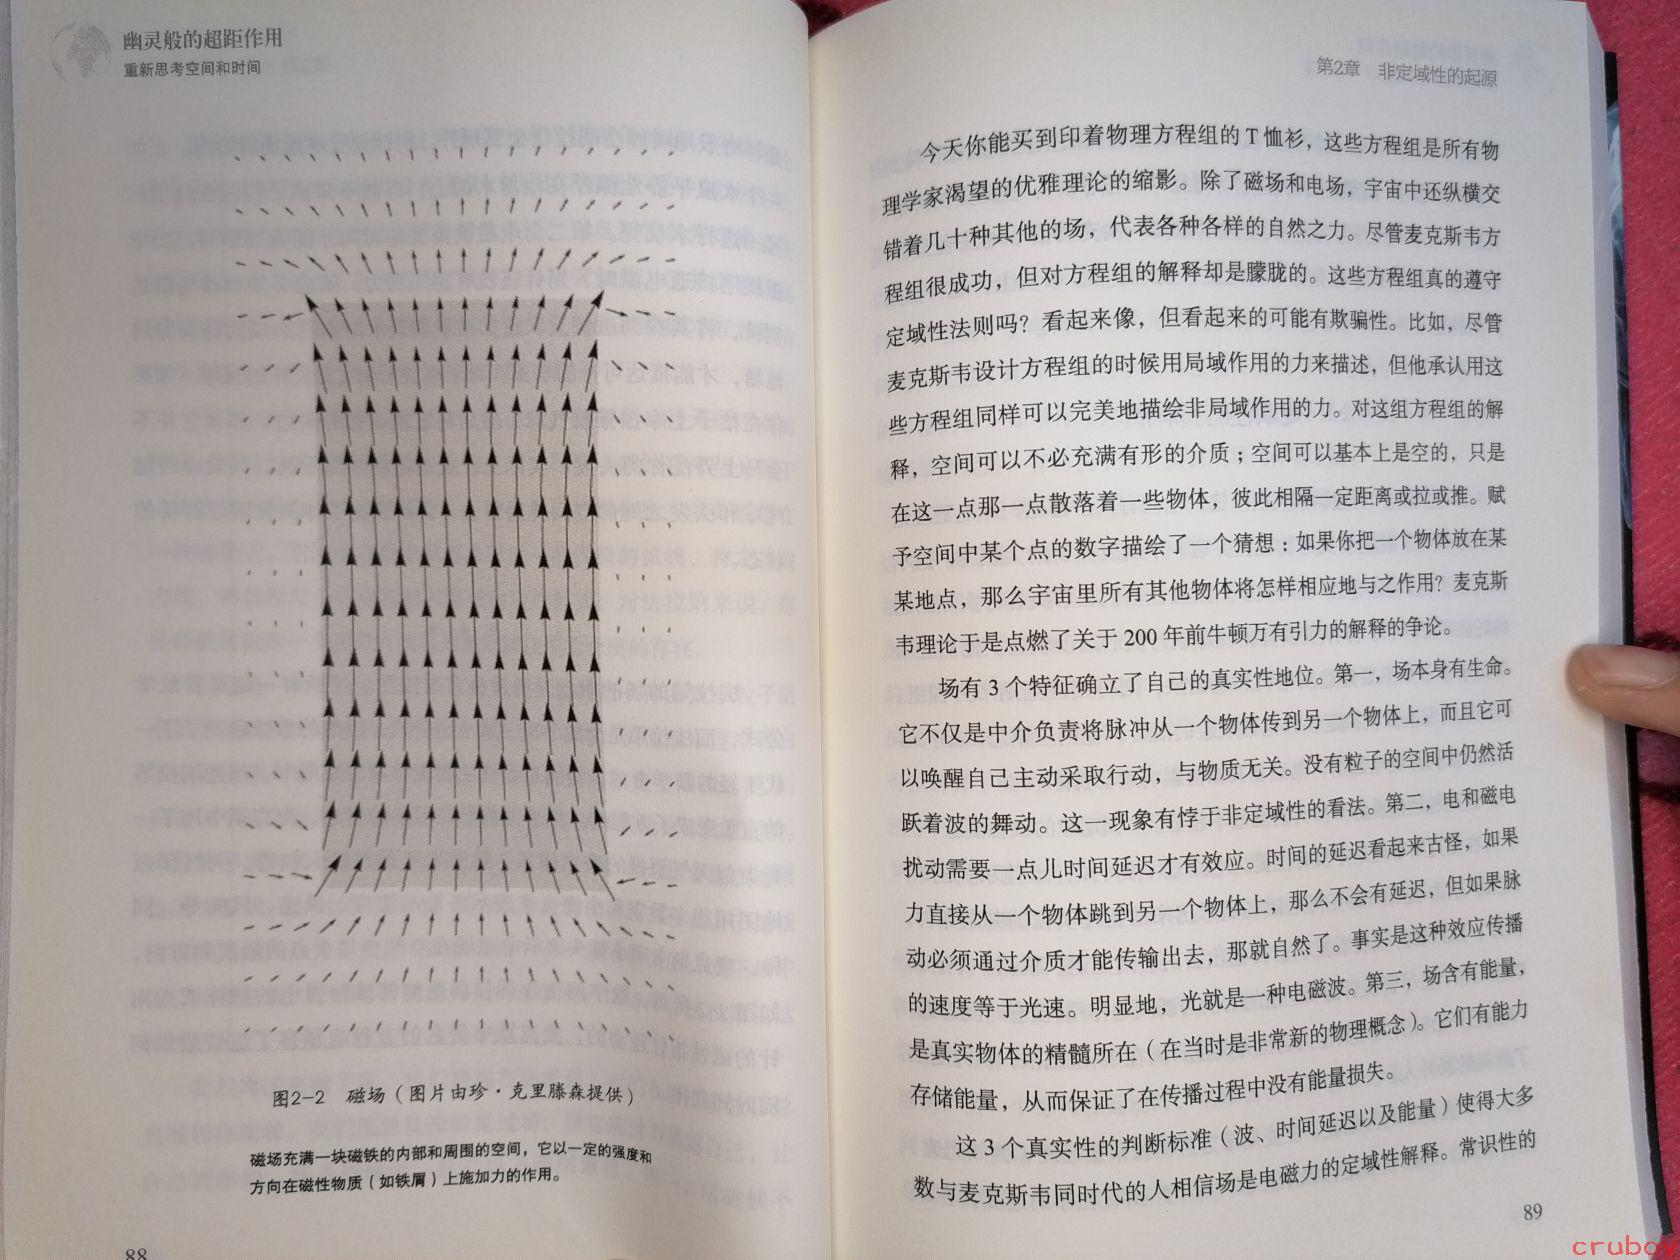 幽灵般的超距作用
重新思考空间和时间
图2-2 磁场（图片由珍·克里滕森提供）
磁场充满一块磁铁的内部和周围的空间，它以一定的强度和
方向在磁性物质（如铁屑）上施加力的作用。
88
第2章 非定域性的起源
今天你能买到印着物理方程组的T恤衫，这些方程组是所有物
理学家渴望的优雅理论的缩影。除了磁场和电场，宇宙中还纵横交
错着几十种其他的场，代表各种各样的自然之力。尽管麦克斯韦方
程组很成功，但对方程组的解释却是朦胧的。这些方程组真的遵守
定域性法则吗？看起来像，但看起来的可能有欺骗性。比如，尽管
麦克斯韦设计方程组的时候用局域作用的力来描述，但他承认用这
些方程组同样可以完美地描绘非局域作用的力。对这组方程组的解
释，空间可以不必充满有形的介质；空间可以基本上是空的，只是
在这一点那一点散落着一些物体，彼此相隔一定距离或拉或推。赋
予空间中某个点的数字描绘了一个猜想：如果你把一个物体放在某
某地点，那么宇宙里所有其他物体将怎样相应地与之作用？麦克斯
韦理论于是点燃了关于200年前牛顿万有引力的解释的争论。
场有3个特征确立了自己的真实性地位。第一，场本身有生命。
它不仅是中介负责将脉冲从一个物体传到另一个物体上，而且它可
以唤醒自己主动采取行动，与物质无关。没有粒子的空间中仍然活
跃着波的舞动。这一现象有悖于非定域性的看法。第二，电和磁电
扰动需要一点儿时间延迟才有效应。时间的延迟看起来古怪，如果
力直接从一个物体跳到另一个物体上，那么不会有延迟，但如果脉
动必须通过介质才能传输出去，那就自然了。事实是这种效应传播
的速度等于光速。明显地，光就是一种电磁波。第三，场含有能量，
是真实物体的精髓所在（在当时是非常新的物理概念）。它们有能力
存储能量，从而保证了在传播过程中没有能量损失。
这3个真实性的判断标准（波、时间延迟以及能量）使得大多
数与麦克斯韦同时代的人相信场是电磁力的定域性解释。常识性的
89